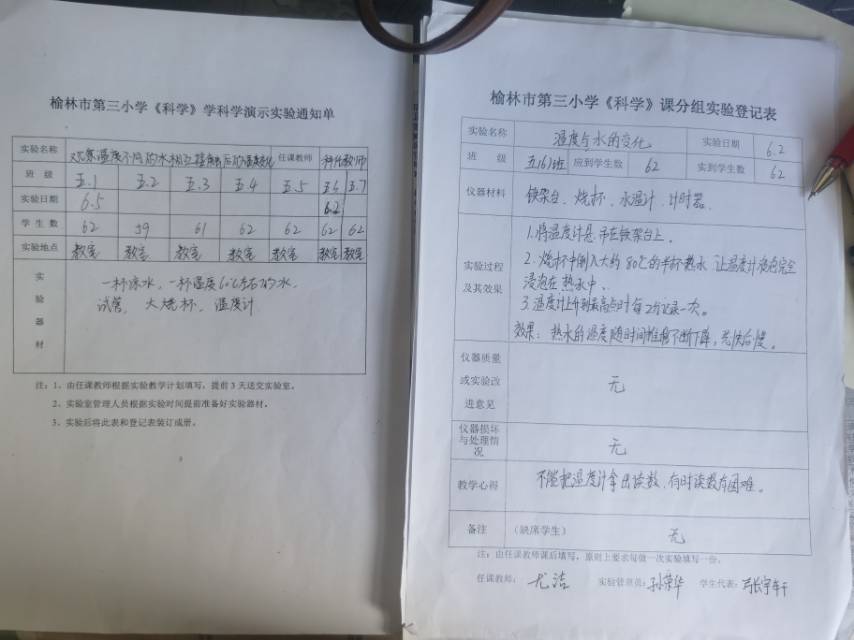 榆林市第三小学《科学》学科学演示实验通知单
实验名称 观察温度不同的水相互接触后的温度变化 任课教师 科任教师
班 级 五.1 五.2 五.3 五.4 五.5 五.6 五.7
实验日期 6.5 6.2
学 生 数 62 59 61 62 62 62 62
实验地点 教室 教室 教室 教室 教室 教室 教室
实验器材
一杯凉水，一杯温度60℃左右的水，
试管， 大烧杯， 温度计
注：1、由任课教师根据实验教学计划填写，提前3天送交实验室。
2、实验室管理人员根据实验时间提前准备好实验器材。
3、实验后将此表和登记表装订成册。
榆林市第三小学《科学》课分组实验登记表
实验名称 温度与水的变化 实验日期 6.2
班 级 五(6)班 应到学生数 62 实到学生数 62
仪器材料 铁架台、烧杯、水温计、计时器、
实验过程及其效果
1.将温度计悬吊在铁架台上。
2.烧杯中倒入大约80℃的半杯热水，让温度计液泡完全
浸泡在热水中、
3.温度计上升到最高点时每2分记录一次。
效果：热水的温度随时间推移不断下降，先快后慢。
仪器质量或实验改进意见 无
仪器损坏与处理情况 无
教学心得 不能把温度计拿出读数，有时读数有困难。
备注 （缺席学生） 无
注：由任课教师课后填写，原则上要求每做一次实验填写一份。
任课教师： 尤洁 实验管理员：孙荣华 学生代表：